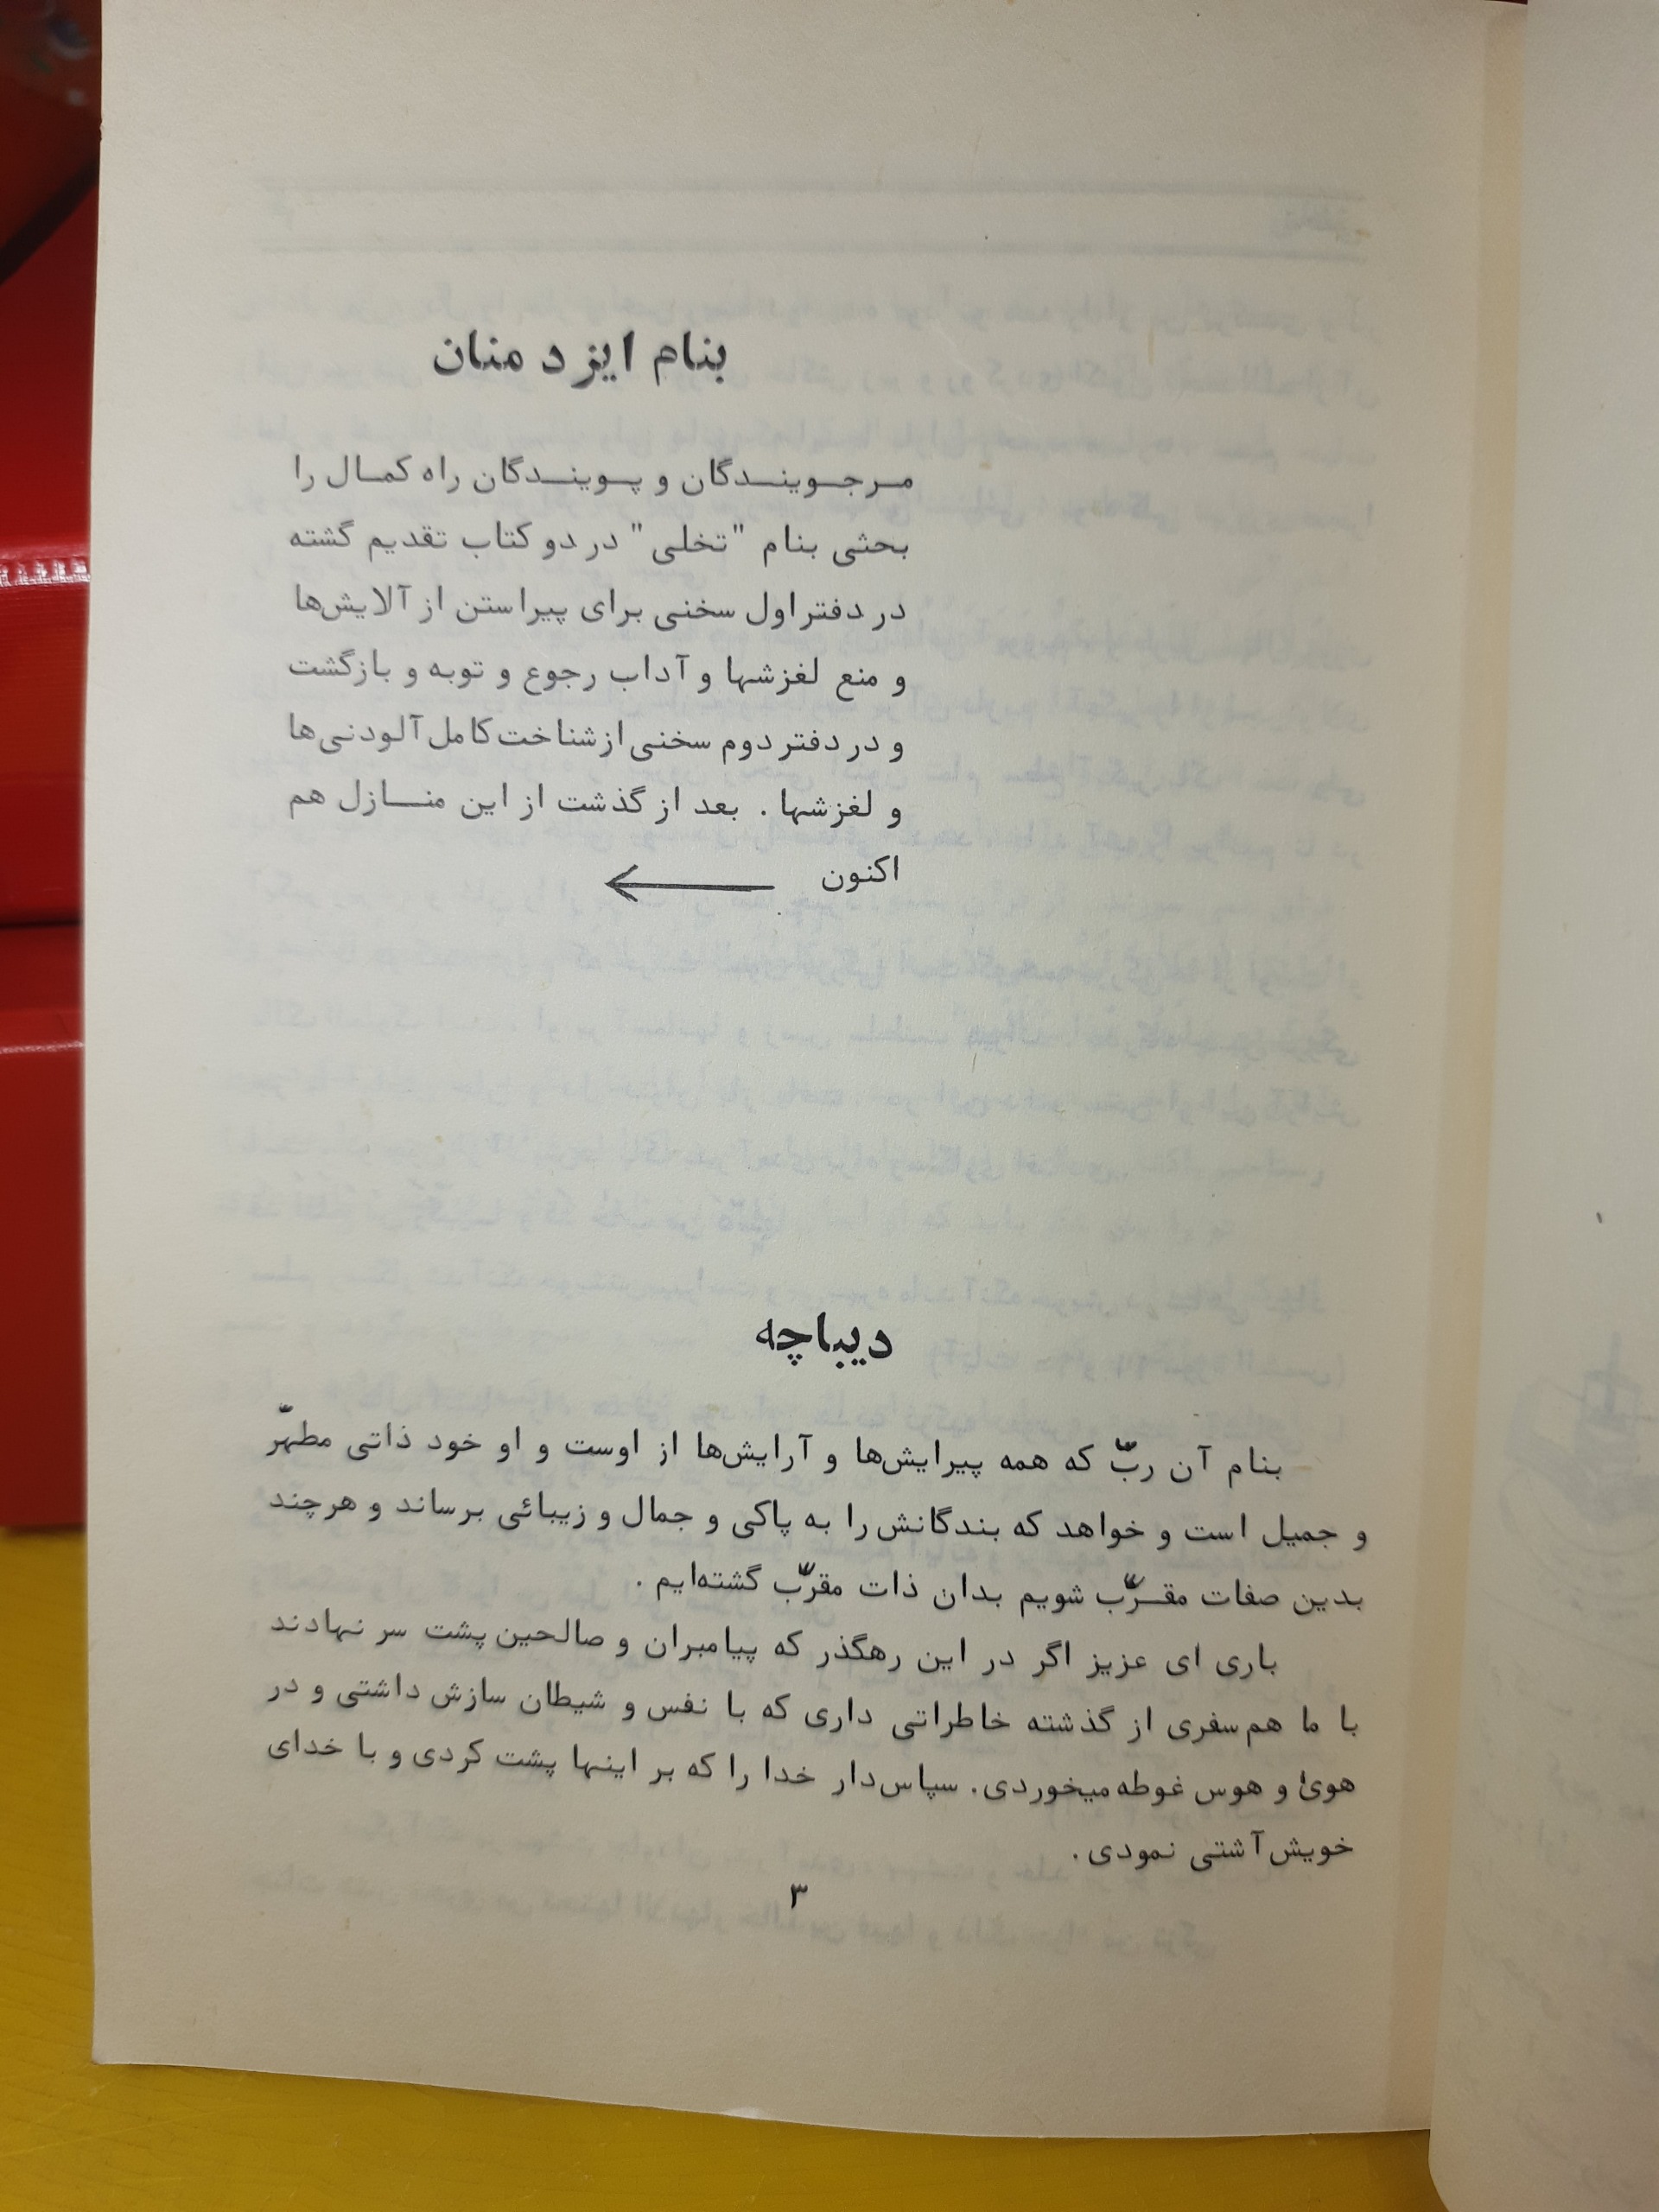 بنام ایزد منان
مرجویندگان و پویندگان راه کمال را
بحثی بنام "تخلی" در دو کتاب تقدیم گشته
در دفتر اول سخنی برای پیراستن از آلایش‌ها
و منع لغزشها و آداب رجوع و توبه و بازگشت
و در دفتر دوم سخنی از شناخت کامل آلودنی‌ها
و لغزشها . بعد از گذشت از این منازل هم
اکنون ←
دیباچه
بنام آن ربّ که همه پیرایش‌ها و آرایش‌ها از اوست و او خود ذاتی مطهّر
و جمیل است و خواهد که بندگانش را به پاکی و جمال و زیبائی برساند و هرچند
بدین صفات مقرّب شویم بدان ذات مقرّب گشته‌ایم .
باری ای عزیز اگر در این رهگذر که پیامبران و صالحین پشت سر نهادند
با ما هم‌سفری از گذشته خاطراتی داری که با نفس و شیطان سازش داشتی و در
هوئ و هوس غوطه میخوردی. سپاس‌دار خدا را که بر اینها پشت کردی و با خدای
خویش آشتی نمودی .
۳